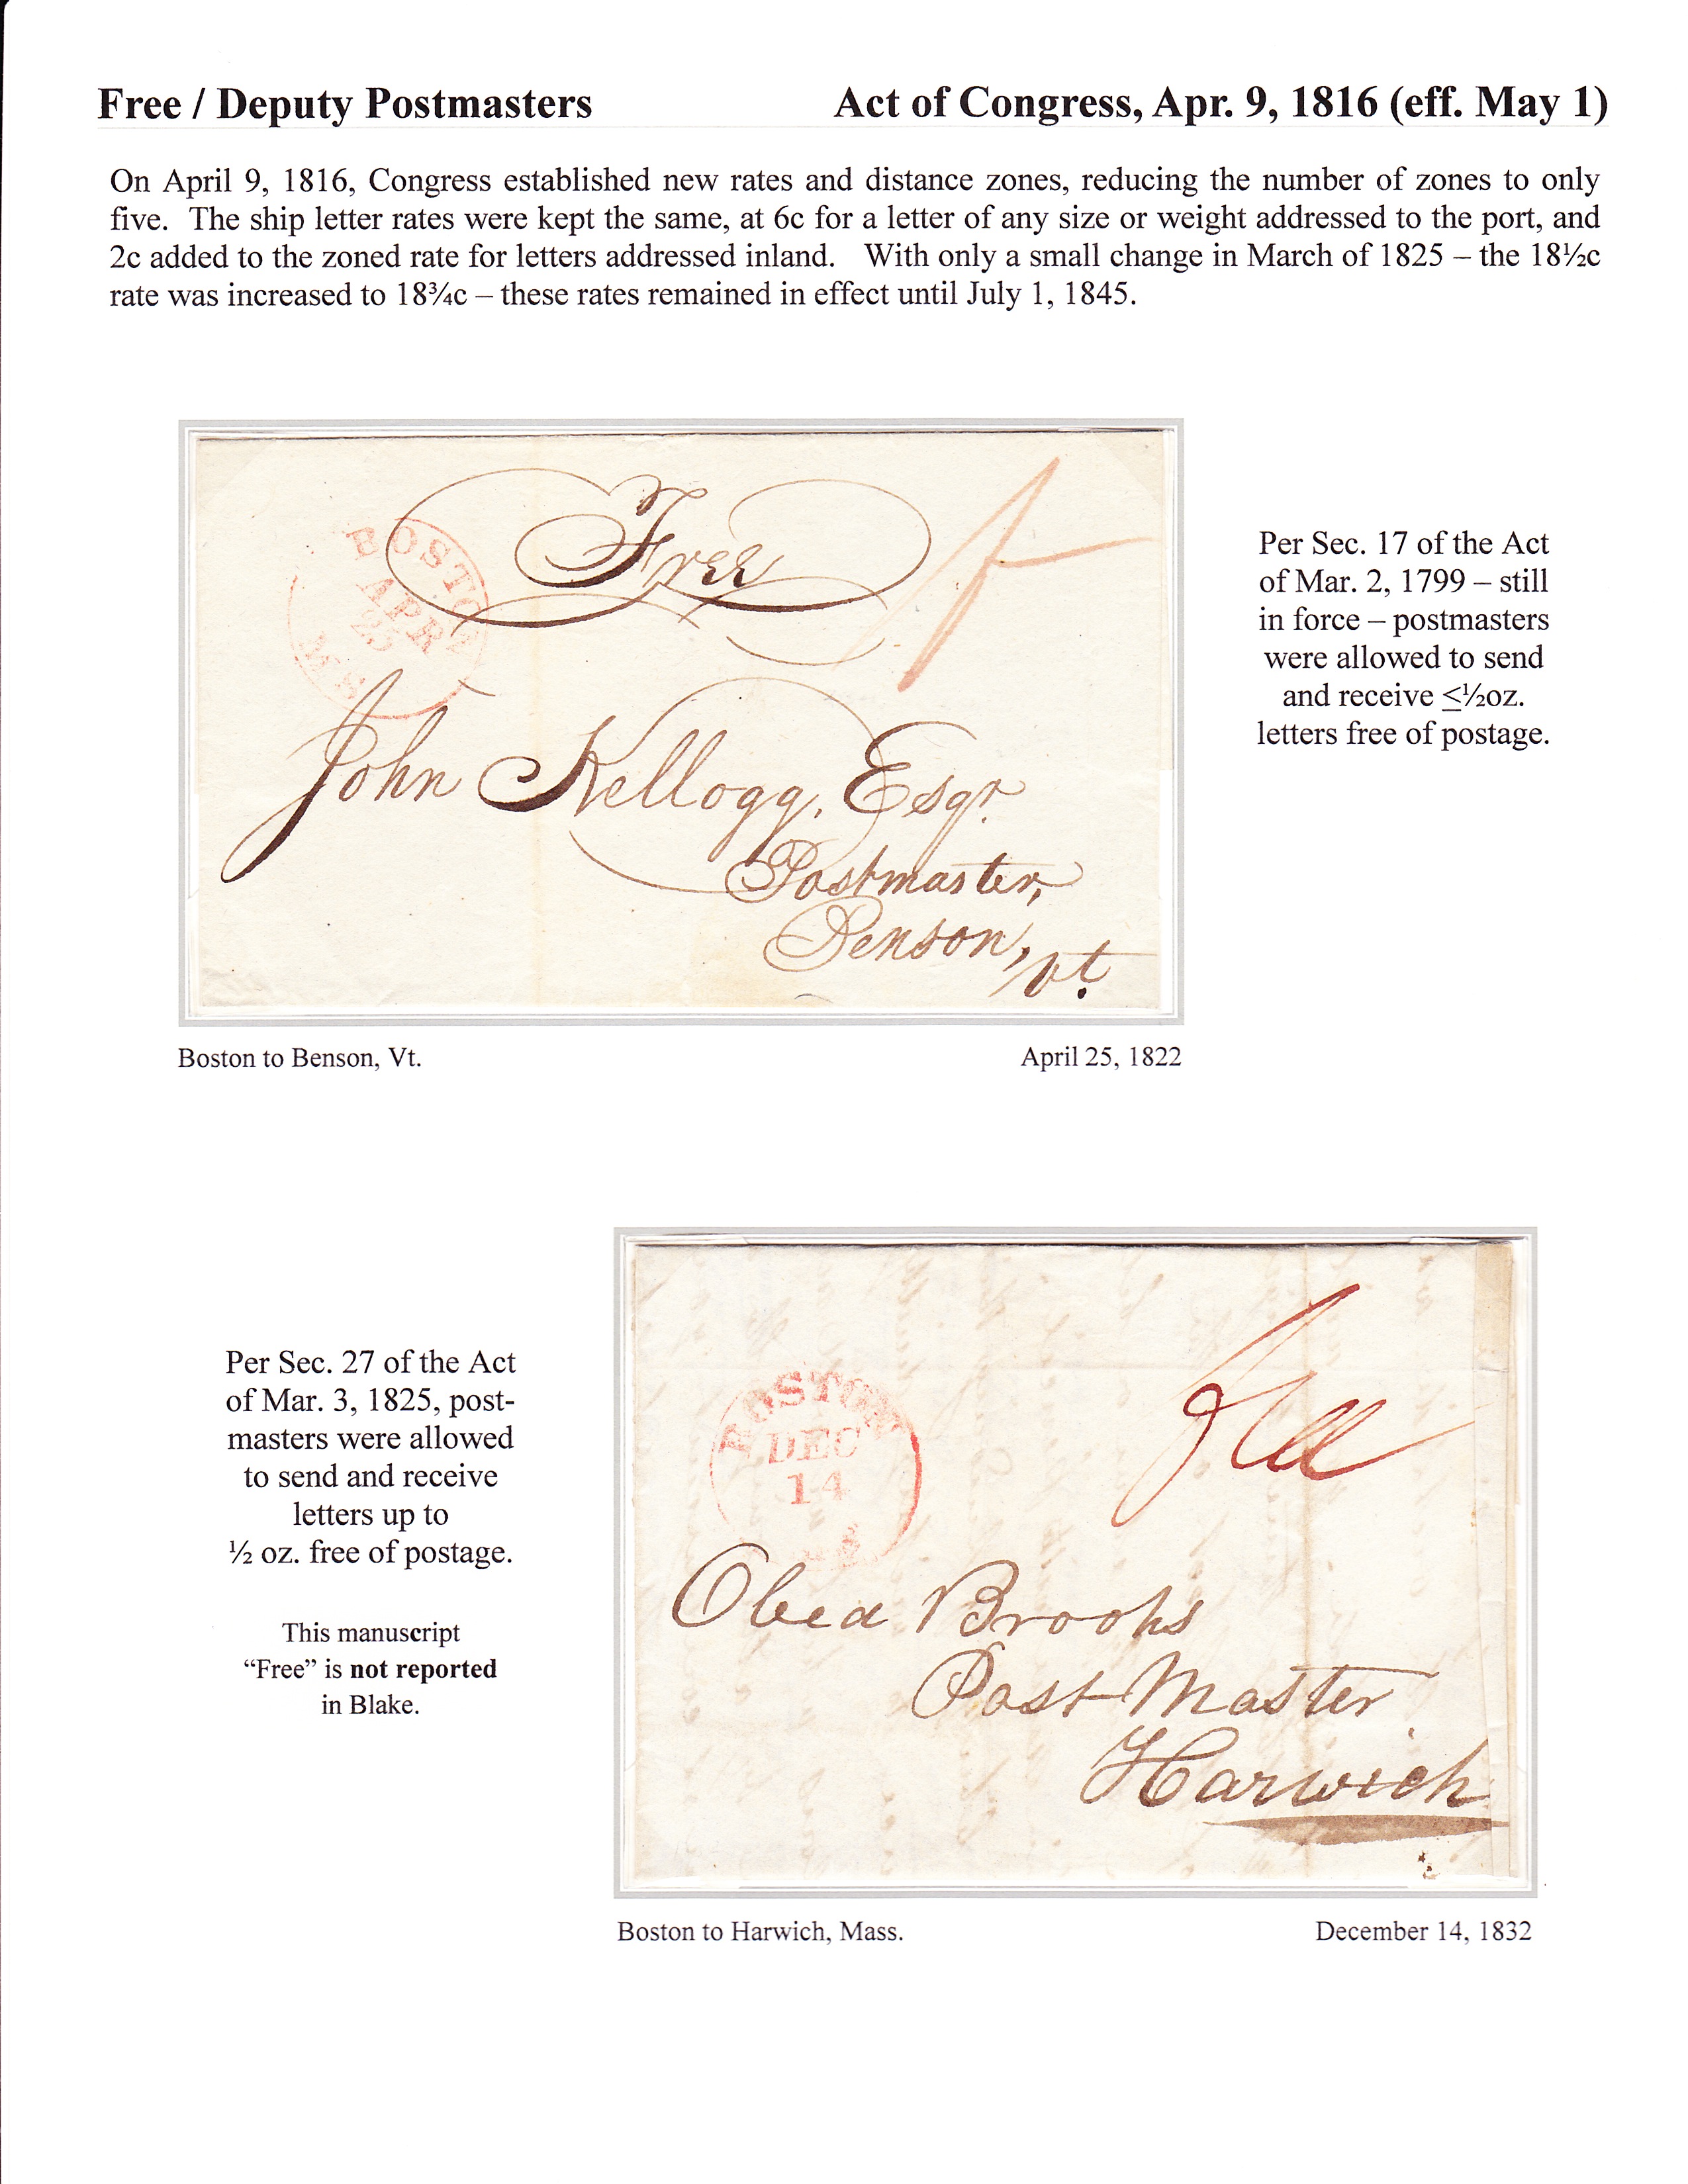 Free / Deputy Postmasters Act of Congress, Apr. 9, 1816 (eff. May 1)
On April 9, 1816, Congress established new rates and distance zones, reducing the number of zones to only
five. The ship letter rates were kept the same, at 6c for a letter of any size or weight addressed to the port, and
2c added to the zoned rate for letters addressed inland. With only a small change in March of 1825 – the 18½c
rate was increased to 18¾c – these rates remained in effect until July 1, 1845.
Free
BOSTON
APR
25
MS
John Kellogg, Esqr.
Postmaster,
Benson,
Vt.
Per Sec. 17 of the Act
of Mar. 2, 1799 – still
in force – postmasters
were allowed to send
and receive ≤½oz.
letters free of postage.
Boston to Benson, Vt. April 25, 1822
Per Sec. 27 of the Act
of Mar. 3, 1825, post-
masters were allowed
to send and receive
letters up to
½ oz. free of postage.
This manuscript
“Free” is not reported
in Blake.
Free
BOSTON
DEC
14
Obed Brooks
Post Master
Harwich
Boston to Harwich, Mass. December 14, 1832